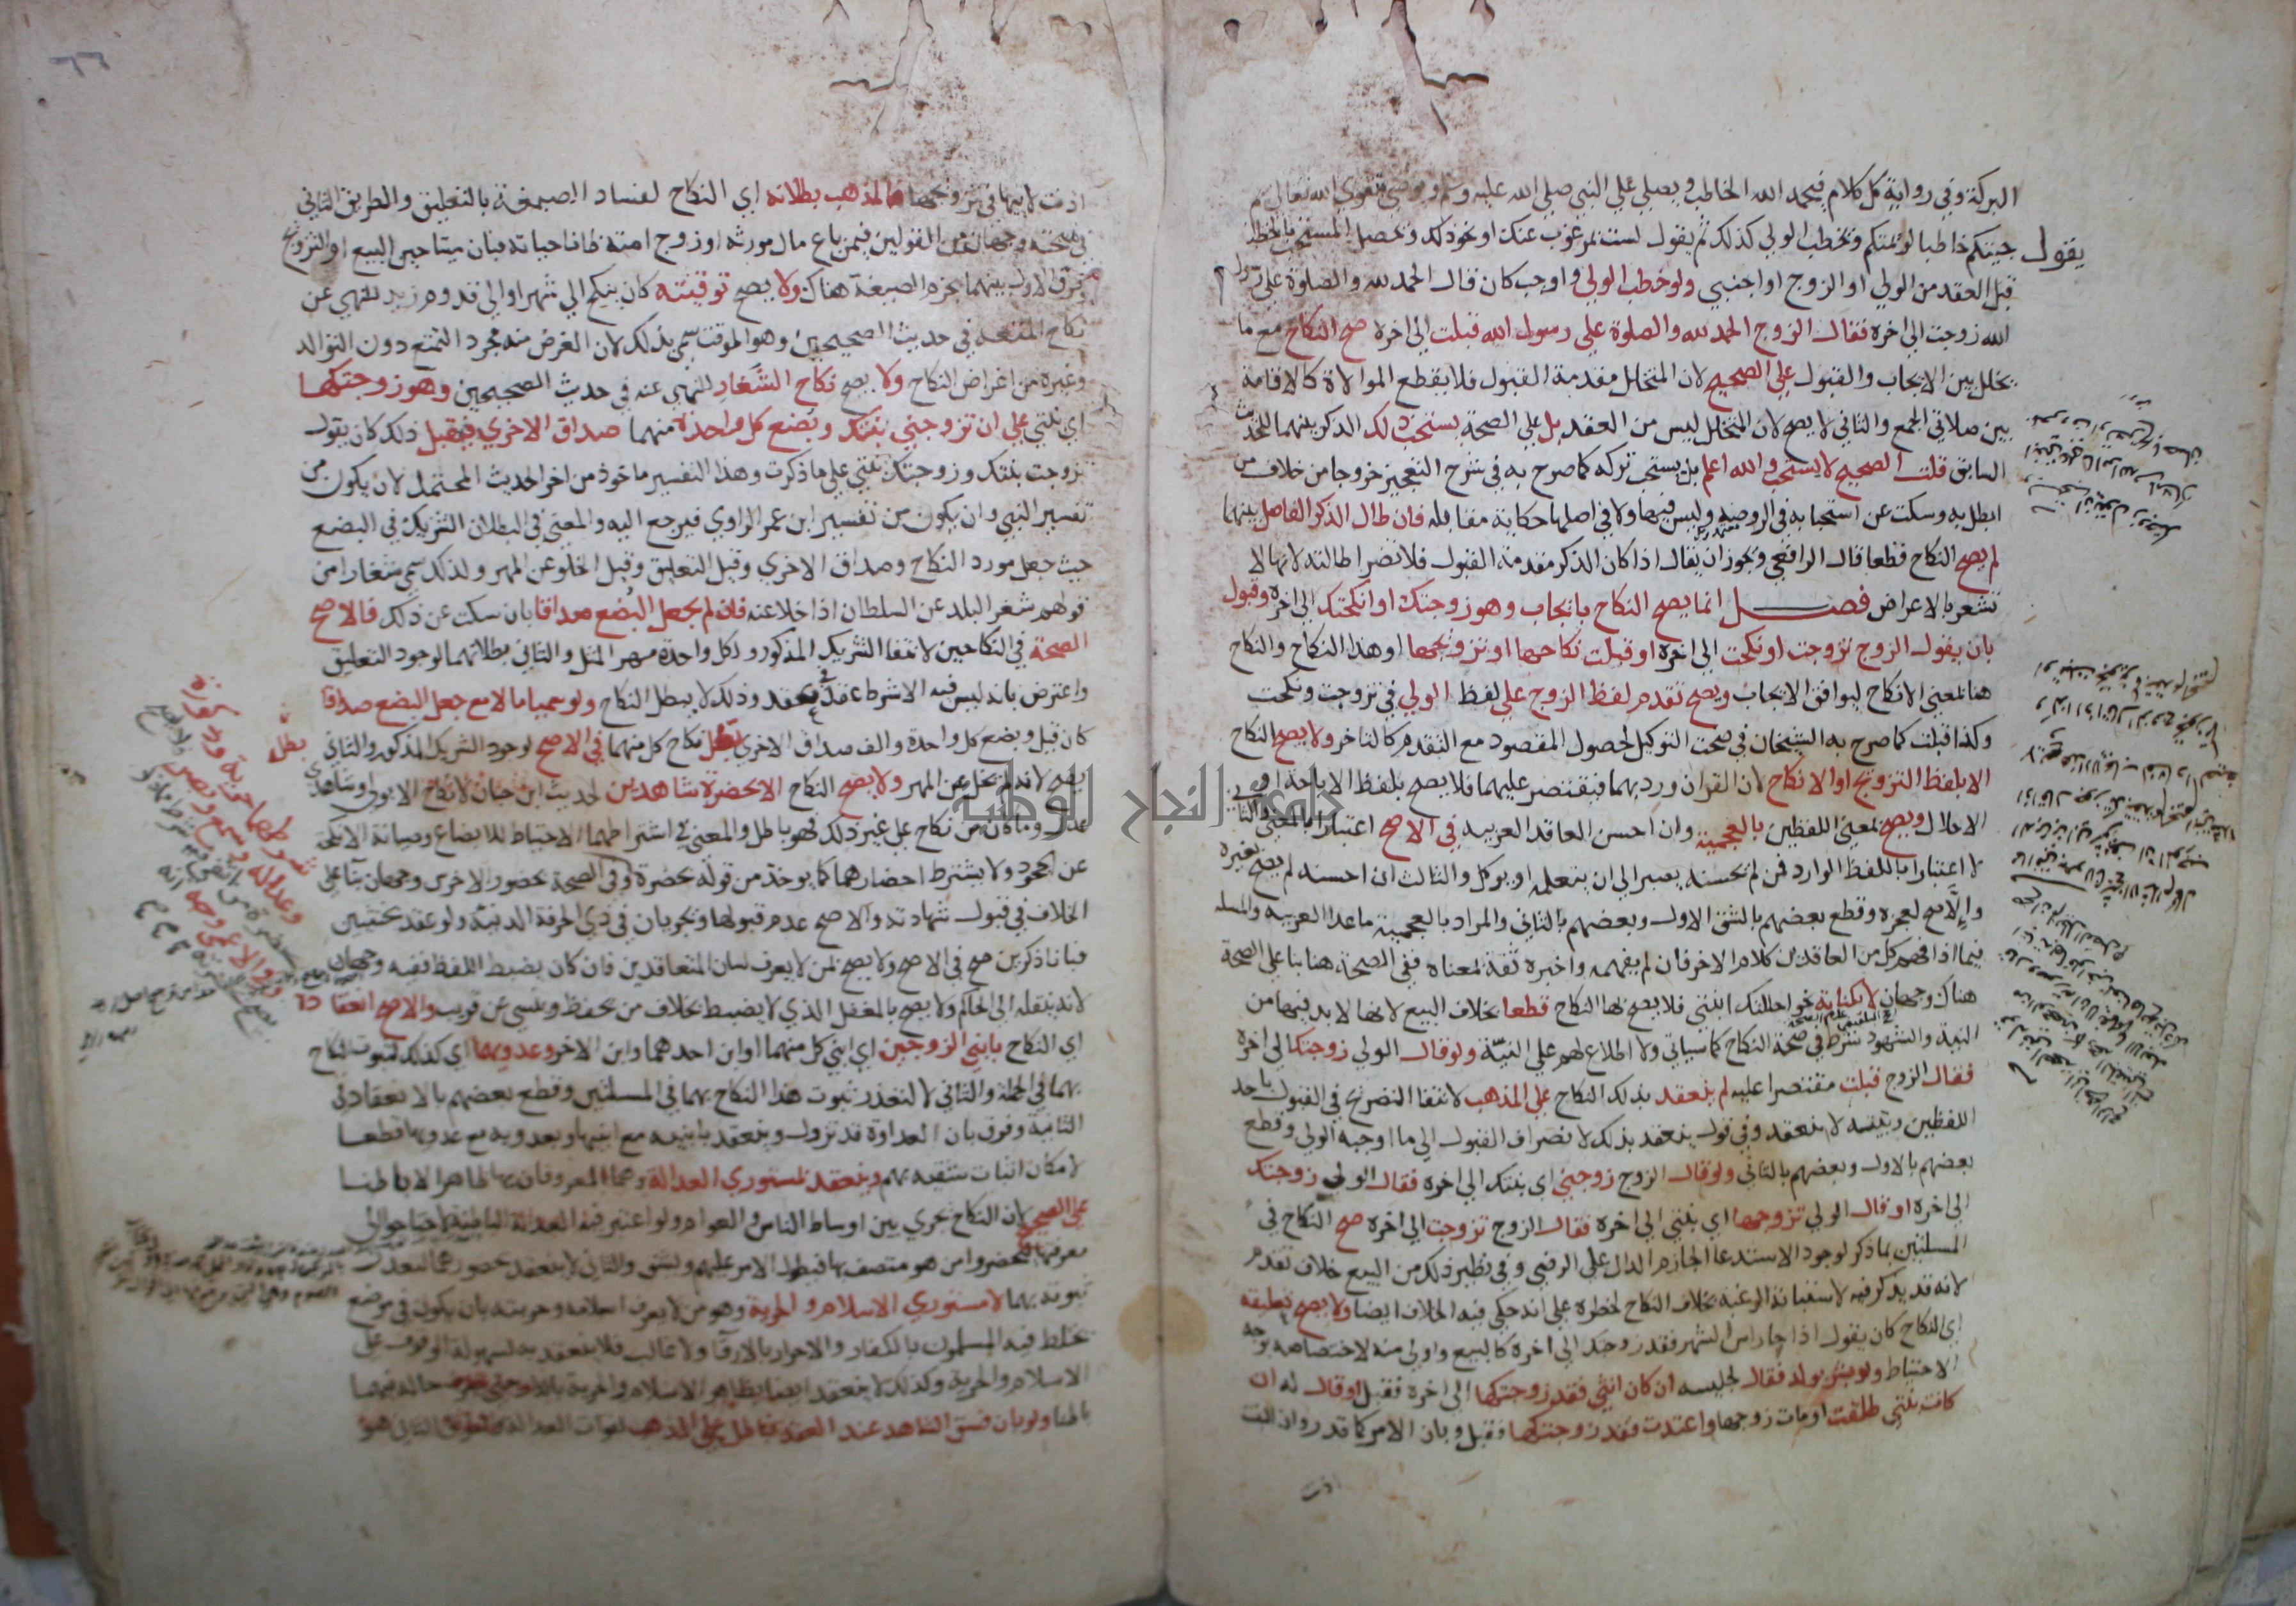 البركة وفي رواية كل كلام فيحمد الله الخاطب ويصلي علي النبي صلي الله عليه وسلم ويوصي بتقوي الله تعالى ثم
يقول جيتكم خاطبا لكريمتكم ويخطب الولي كذلك ثم يقول لست بمرغوب عنك او نحو ذلك وتحصل المستحب بالخطبة
قبل العقد من الولي او الزوج او اجنبي ولو خطب الولي واوجب كان قال الحمد لله والصلوة علي رسول
الله زوجت الي اخره فقال الزوج الحمد لله والصلوة علي رسول الله قبلت الي اخره صح النكاح مع ما
يخلل بين الايجاب والقبول علي الصحيح لان المتخلل مقدمة القبول فلا يقطع الموالاة كالاقامة
بين صلاتي الجمع والثاني لا يصح لان المتخلل ليس من العقد بل علي الصحة يستحب ذلك الذكر بينهما للحديث
السابق قلت الصحيح لا يستحب والله اعلم بل يستحب تركه كما صرح به في شرح التعجيز خروجا من خلاف من
ابطل به وسكت عن استحبابه في الروضة وليس فيها ولا في اصلها حكاية مقابله فان طال الذكر الفاصل بينهما
لم يصح النكاح قطعا قال الرافعي ويجوز ان يقال اذا كان الذكر مقدمة القبول فلا تضر اطالته لانها لا
تشعر بالاعراض فصل انما يصح النكاح بايجاب وهو زوجتك او انكحتك الي اخره وقبول
بان يقول الزوج تزوجت او نكحت الي اخره او قبلت نكاحها او تزويجها او هذا النكاح والنكاح
هنا بمعني الانكاح ليوافق الايجاب ويصح تقدم لفظ الزوج علي لفظ الولي في تزوجت ونكحت
وكذا قبلت كما صرح به الشيخان في صحت التوكيل لحصول المقصود مع التقدم كالتاخر ولا يصح النكاح
الا بلفظ التزويج او الانكاح لان القران ورد بهما فيقتصر عليهما فلا يصح بلفظ الاباحة او
الاحلال ويصح بمعني اللفظين بالعجمية وان احسن العاقد العربية في الاصح اعتبارا بالمعني والثاني
لا اعتبارا باللفظ الوارد فمن لم يحسنه يصبر الي ان يتعلمه او يوكل والثالث ان احسنه لم يصح بغيره
والا صح لعجزه وقطع بعضهم بالشق الاول وبعضهم بالثاني والمراد بالعجمية ماعدا العربية والمسلة
فيما اذا فهم كل من العاقدين كلام الاخر فان لم يفهمه واخبره ثقة بمعناه ففي الصحة هنا بنا علي الصحة
هناك وجهان لا بكناية نحو احللتك ابنتي فلا يصح بها النكاح قطعا بخلاف البيع لانها لا بد فيها من
النية والشهود شرط في صحة النكاح كما سياتي ولا اطلاع لهم علي النية ولو قال الولي زوجتكها الي اخره
فقال الزوج قبلت مقتصرا عليه لم ينعقد بذلك النكاح علي المذهب لانتفا التصريح في القبول باحد
اللفظين ونيته لا ينعقد وفي قول ينعقد بذلك لانصراف القبول الي ما اوجبه الولي وقطع
بعضهم بالاول وبعضهم بالثاني ولو قال الزوج زوجني اي بنتك الي اخره فقال الولي زوجتك
الي اخره او قال الولي تزوجها اي بنتي الي اخره فقال الزوج تزوجت الي اخره صح النكاح في
المسلتين بما ذكر لوجود الاستدعا الجازم الدال علي الرضي وفي نظير ذلك من البيع خلاف تقدم
لانه قد يذكر فيه لاستبانة الرغبة بخلاف النكاح لخطره علي انه حكي فيه الخلاف ايضا ولا يصح تعليقه
اي النكاح كان يقول اذا جا راس الشهر فقد زوجتك الي اخره كالبيع واولي منه لاختصاصه بوجه
الاحتياط ولو بشر بولد فقال لجليسه ان كان انثي فقد زوجتكها الي اخره فقبل او قال له ان
كانت بنتي طلقت او مات زوجها واعتدت فقد زوجتكها فقبل وبان الامر كما قدر وان البنت
اذنت
٦٦
اذنت لابيها في تزويجها فالمذهب بطلانه اي النكاح لفساد الصيغة بالتعليق والطريق الثاني
في صحته وجهان من القولين فيمن باع مال مورثه او زوج امته ظانا حياته فبان ميتا حين البيع او التزويج
وفرق الاول بينهما بجزم الصيغة هناك ولا يصح توقيته كان ينكح الي شهر او الي قدوم زيد للنهي عن
نكاح المتعة في حديث الصحيحين وهو الموقت سمي بذلك لان الغرض منه مجرد التمتع دون التوالد
وغيره من اغراض النكاح ولا يصح نكاح الشغار للنهي عنه في حديث الصحيحين وهو زوجتكها
اي بنتي علي ان تزوجني بنتك وبضع كل واحدة منهما صداق الاخري فيقبل ذلك كان يقول
تزوجت بنتك وزوجتك بنتي علي ما ذكرت وهذا التفسير ماخوذ من اخر الحديث المحتمل لان يكون من
تفسير النبي وان يكون من تفسير ابن عمر الراوي فيرجع اليه والمعني في البطلان التشريك في البضع
حيث جعل مورد النكاح وصداق الاخري وقيل التعليق وقيل الخلو عن المهر ولذلك سمي شغارا من
قولهم شغر البلد عن السلطان اذا خلا عنه فان لم يجعل البضع صداقا بان سكت عن ذلك فالاصح
الصحة في النكاحين لانتفا التشريك المذكور ولكل واحدة مهر المثل والثاني بطلانهما لوجود التعليق
واعترض بانه ليس فيه الا شرط عقد في عقد وذلك لا يبطل النكاح ولو سميا مالا مع جعل البضع صداقا
كان قيل وبضع كل واحدة والف صداق الاخري بطل نكاح كل منهما في الاصح لوجود التشريك المذكور والثاني
يصح لانه لم يخل عن المهر ولا يصح النكاح الا بحضرة شاهدين لحديث ابن حبان لا نكاح الا بولي وشاهدي
عدل وما كان من نكاح علي غير ذلك فهو باطل والمعني في اشتراطهما الاحتياط للابضاع وصيانة الانكحة
عن الجحود ولا يشترط احضارهما كما يوخذ من قوله بحضرة وفي الصحة بحضور الاخرس وجهان بنا علي
الخلاف في قبول شهادته والاصح عدم قبولها ويجريان في ذي الحرفة الدنية ولو عقد بخنثيين
فبانا ذكرين صح في الاصح ولا يصح بمن لا يعرف لسان المتعاقدين فان كان يضبط اللفظ ففيه وجهان
لانه ينقله الي الحاكم ولا يصح بالمغفل الذي لا يضبط بخلاف من يحفظ وينسي عن قريب والاصح انعقاده
اي النكاح بابني الزوجين اي ابني كل منهما او ابن احدهما وابن الاخر وعدويهما اي كذلك لثبوت النكاح
بهما في الجملة والثاني لا لتعذر ثبوت هذا النكاح بهما في المسلتين وقطع بعضهم بالانعقاد في
الثانية وفرق بان العداوة قد تزول وينعقد بابنيه مع ابنيها وبعدويه مع عدويها قطعا
لامكان اثبات شقيه بهم وينعقد بمستوري العدالة وهما المعروفان بها ظاهرا لا باطنا
علي الصحيح لان النكاح يجري بين اوساط الناس والعوام ولو اعتبر فيه العدالة الباطنة لاحتاجوا الي
معرفتها ليحضروا من هو متصف بها فيطول الامر عليهم ويشق والثاني لا ينعقد بحضورهما لتعذر
ثبوته بهما لا مستوري الاسلام والحرية وهو من لا يعرف اسلامه وحريته بان يكون في موضع
تختلط فيه المسلمون بالكفار والاحرار بالارقا ولا غالب فلا ينعقد به لسهولة الوقوف علي
الاسلام والحرية وكذلك لا ينعقد ايضا بظاهر الاسلام والحرية بالدار حتي يعرف حاله فيهما
باطنا ولو بان فسق الشاهد عند العقد فباطل علي المذهب لفوات العدالة والطريق الثاني هو
جامعة النجاح الوطنية